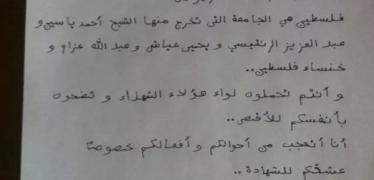 فلسطين هي الجامعة التي تخرج منها الشيخ أحمد ياسين و
عبد العزيز الرنتيسي و يحيى عياش و عبد الله عزام و
خنساء فلسطين..
و أنتم تحملون لواء هؤلاء الشهداء و تضحون
بأنفسكم للأقصى..
أنا أتعجب من أحوالكم و أفعالكم خصوصًا
عشقكم للشهادة..